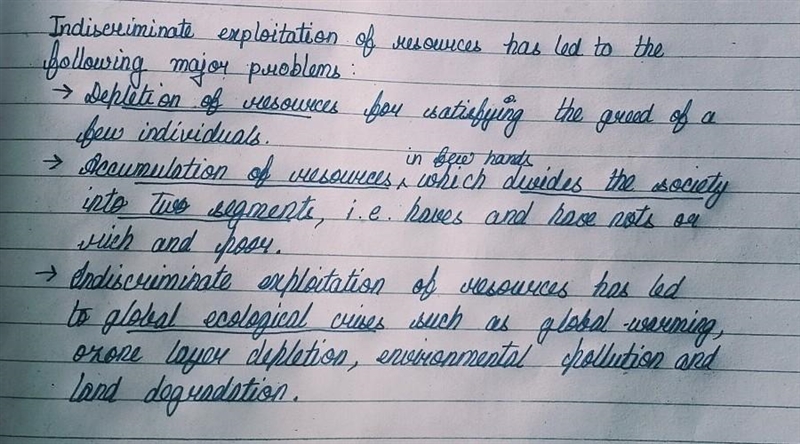 Indiscriminate exploitation of resources has led to the
following major problems :
→ Depletion of resources for satisfying the greed of a
few individuals.
in few hands
→ Accumulation of resources, ^ which divides the society
into two segments, i.e. haves and have nots or
rich and poor.
→ Indiscriminate exploitation of resources has led
to global ecological crises such as global warming,
ozone layer depletion, environmental pollution and
land degradation.